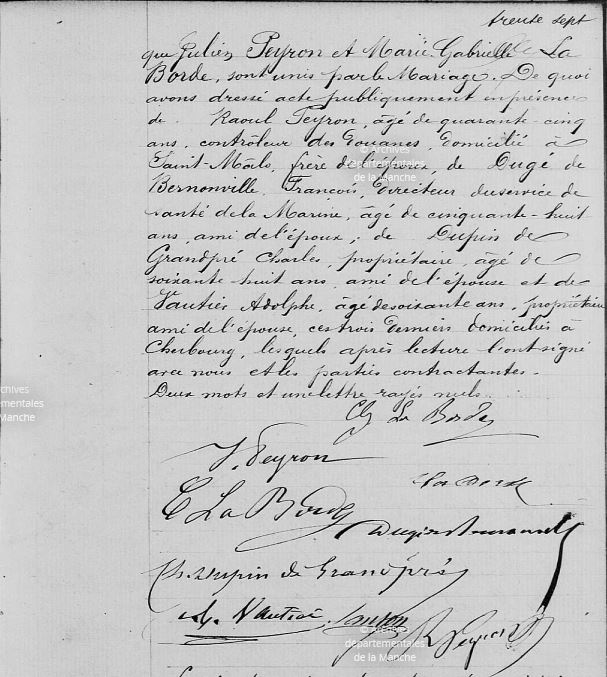 trente sept
que Julien Peyron et Marie Gabrielle La
Borde, sont unis par le Mariage. De quoi
avons dressé acte publiquement en présence
de Raoul Peyron, âgé de quarante-cinq
ans, contrôleur des Douanes, domicilié à
Saint-Mâlo, frère de l'époux, de Dugé de
Bernonville, François, Directeur du service de
santé de la Marine, âgé de cinquante-huit
ans, ami de l'époux; de Dupin de
Grandpré Charles, propriétaire, âgé de
soixante huit ans, ami de l'épouse et de
Vautier Adolphe, âgé de soixante ans, propriétaire
ami de l'épouse, ces trois derniers domiciliés à
Cherbourg, lesquels après lecture l'ont signé
avec nous et les parties contractantes.
Deux mots et une lettre rayés nuls.
La Borde
J. Peyron
La Borde
E La Borde
Ch. Dupin de Grandpré
A. Vautier
R Peyron
archives
départementales
de la Manche
archives
départementales
de la Manche
départementales
de la Manche